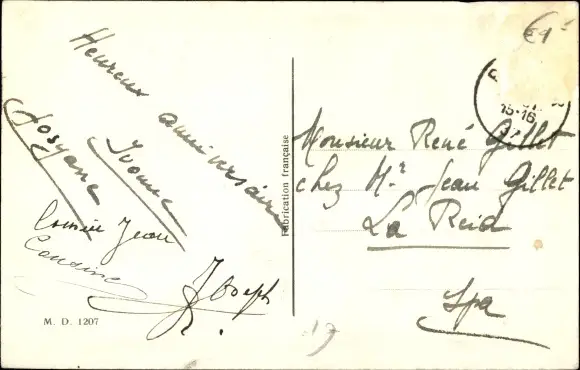 Heureux anniversaire
Josyane
Yvonne
Cousin Jean
Cousine
Joseph
M. D. 1207
Fabrication française
15-16
Monsieur René Gillet
chez Mr Jean Gillet
La Reid
Spa